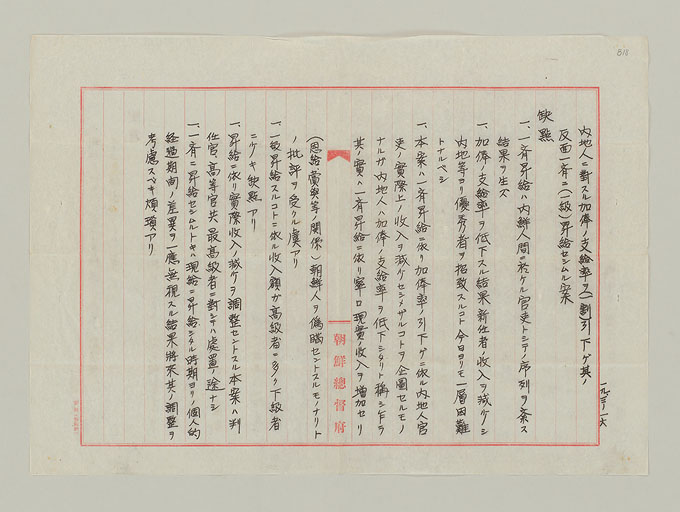 818
一九、三、一六
內地人ニ對スル加俸ノ支給率ヲ(一割)引下ゲ其ノ
反面一斉ニ(一級)昇給セシムル案
缺點
一、一斉昇給ハ內鮮人間ニ於ケル官吏トシテノ序列ヲ紊ス
結果ヲ生ズ
一、加俸ノ支給率ヲ低下スル結果新任者ノ收入ヲ減ゲシ
內地等ヨリ優秀者ヲ招致スルコト今日ヨリモ一層困難
トナルベシ
一、本案ハ一斉昇給ニ依リ加俸率ノ引下ゲニ依ル內地人官
吏ノ實際上ノ收入ヲ減ゲセシメザルコトヲ企圖セルモノ
ナルガ內地人ハ加俸ノ支給率ヲ低下シタリト稱シ乍ラ
其ノ實ハ一斉昇給ニ依リ寧ロ現實ノ收入ヲ增加セリ
(恩給賞與等ノ關係)朝鮮人ヲ僞瞞セントスルモノナリト
ノ批評ヲ受クル虞アリ
一、一級昇給スルコトニ依ル收入額ガ高級者ニ多ク下級者
ニ少ナキ缺點アリ
一、昇給ニ依リ實際收入ノ減ゲヲ調整セントスル本案ハ判
任官、高等官共最高級者ニ對シテハ處置ノ途ナシ
一、一斉ニ昇給セシムルトキハ現給ニ昇給シタル時期ヨリノ個人的
經過期間ノ差異ヲ一應無視スル結果將來其ノ調整ヲ
考慮スベキ煩瑣アリ
朝鮮總督府